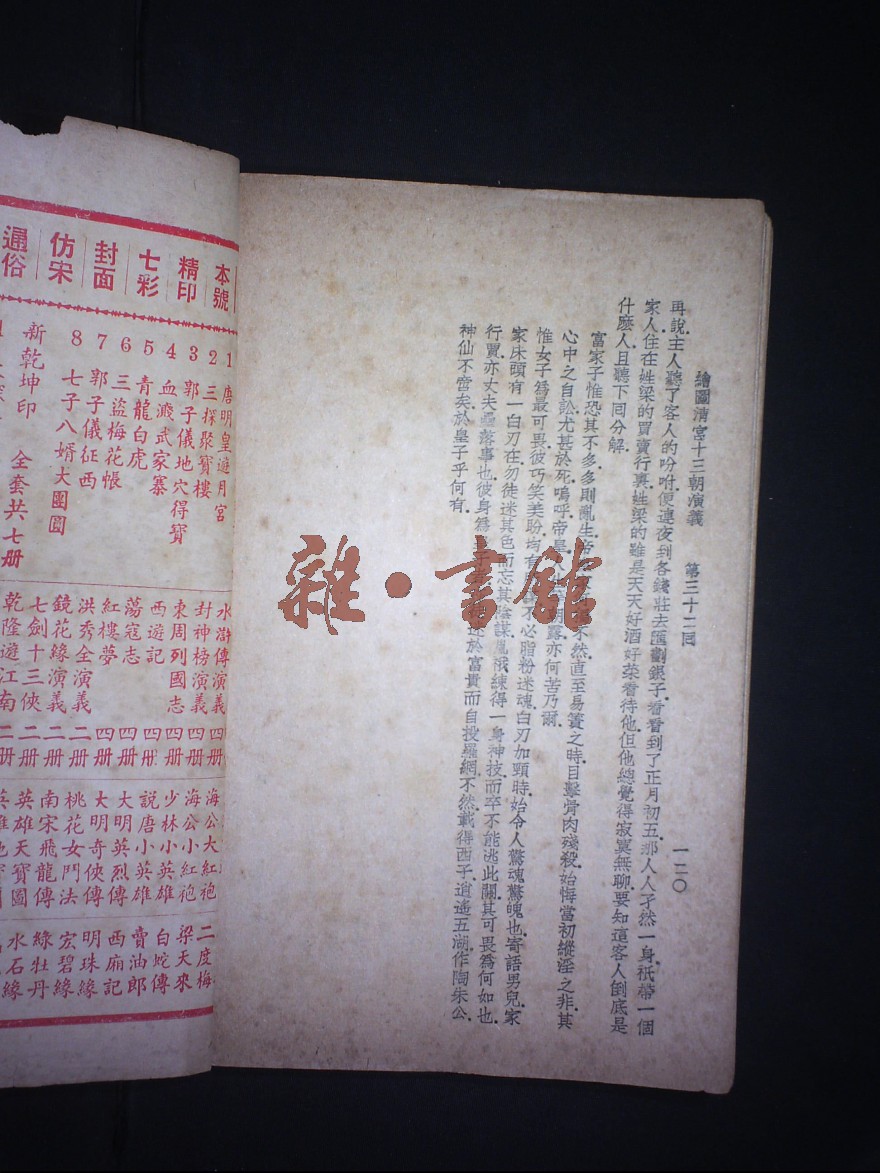 繪圖清宮十三朝演義　第三十二回　一二〇
再說主人聽了客人的吩咐便連夜到各錢莊去匯劃銀子看看到了正月初五那人人孑然一身祇帶一個
家人住在姓梁的買賣行裏姓梁的雖是天天好酒好菜看待他但他總覺得寂寞無聊要知這客人倒底是
什麽人且聽下回分解
富家子惟恐其不多多則亂生帝
不然直至易簀之時目擊骨肉殘殺始悔當初縱淫之非其
心中之自訟尤甚於死嗚呼帝皇
露亦何苦乃爾
惟女子爲最可畏彼巧笑美盼均有
不必脂粉迷魂白刃加頸時始令人驚魂驚魄也寄語男兒家
家床頭有一白刃在勿徒迷其色而忘其陰謀胤禩練得一身神技而卒不能逃此關其可畏爲何如也
行買亦丈夫
落事也彼身爲
迷於富貴而自投羅網不然載得西子逍遙五湖作陶朱公
神仙不啻矣於皇子乎何有
雜·書館
本號
精印
七彩
封面
仿宋
通俗
1 唐明皇遊月宮
2 三探聚寶樓
3 郭子儀地穴得寶
4 血濺武家寨
5 青龍白虎
6 三盜梅花帳
7 郭子儀征西
8 七子八婿大團圓
新乾坤印　全套共七册
水滸傳演義
封神榜演義 四册
東周列國志 四册
西遊記 四册
蕩寇志 四册
紅樓夢 四册
洪秀全演義 二册
鏡花緣演義 二册
七劍十三俠 二册
乾隆遊江南 二册
海公大紅袍
海公小紅袍
少林小英雄
說唐小英雄
大明英烈傳
大明奇俠傳
桃花女鬥法
南宋飛龍傳
英雄天寶圖
二度梅
梁天來
白蛇傳
賣油郎
西廂記
明珠緣
宏碧緣
綠牡丹
水石緣